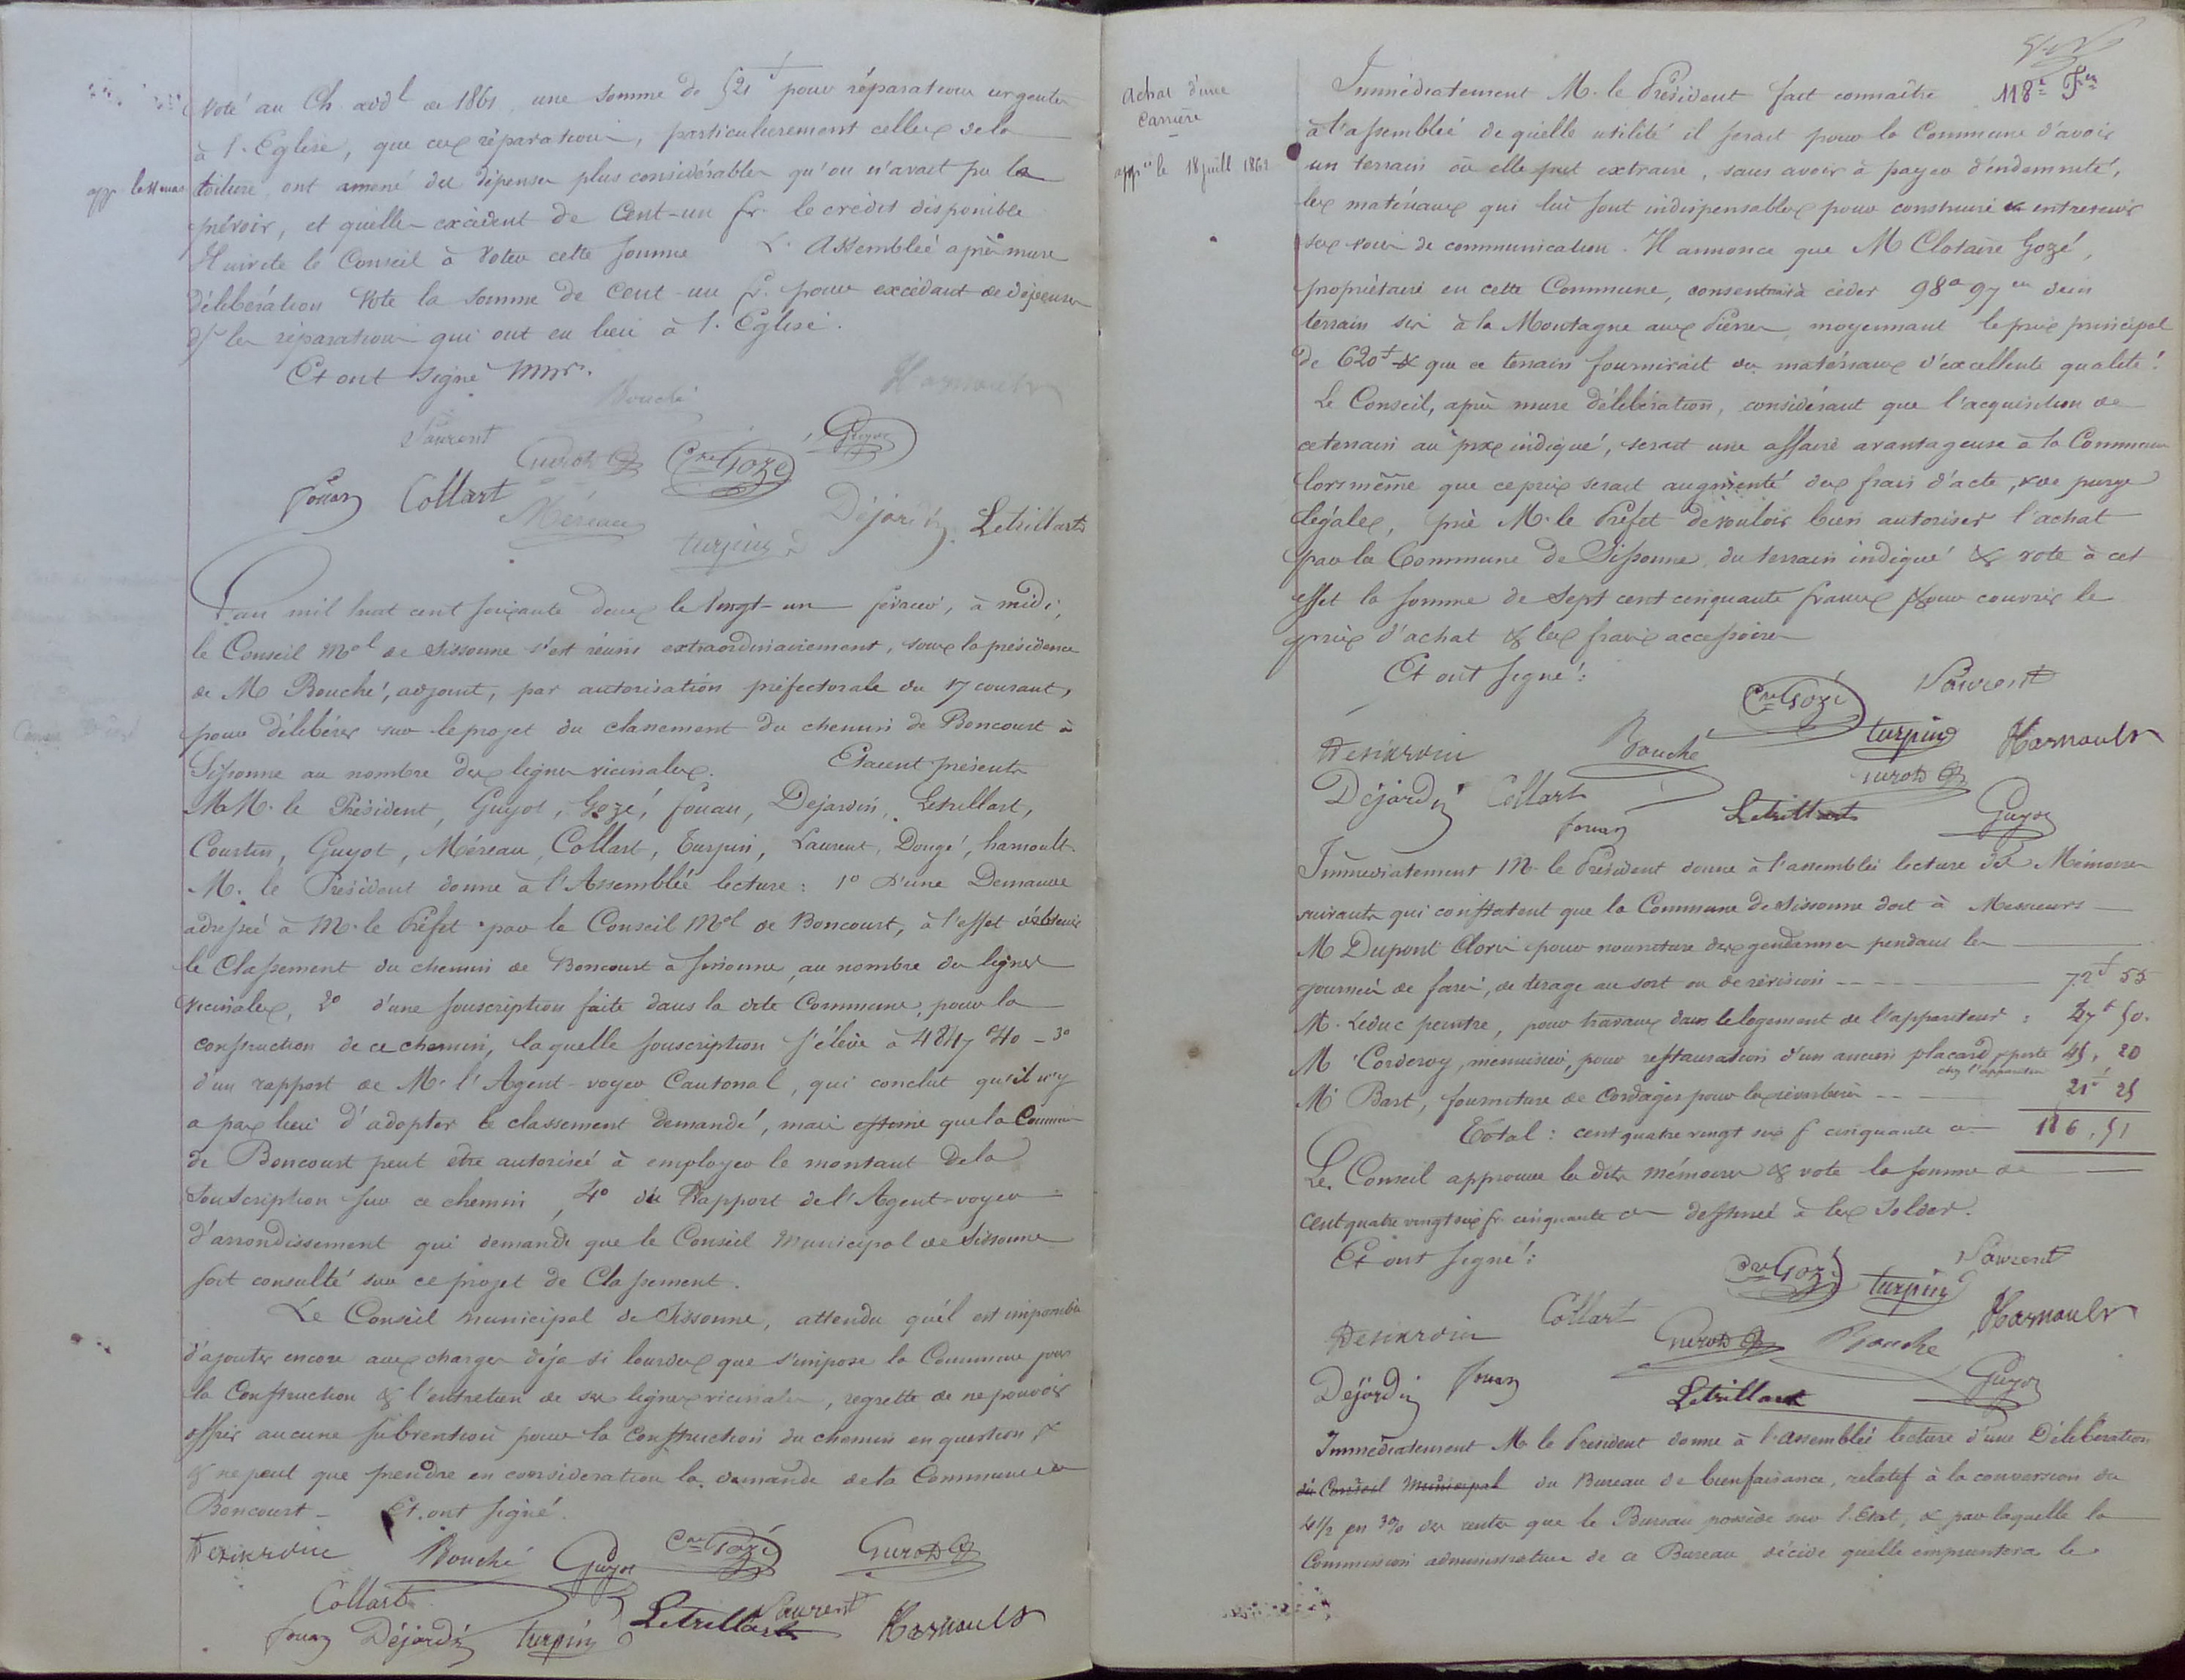 Voté au Ch. add.l de 1861 une somme de 521 f pour réparations urgentes
à l'Eglise, que ces réparations, particulièrement celles de la
app. le 11 mars
toiture ont amené des dépenses plus considérables qu'on n'avait pu les
prévoir, et qu'elles excèdent de Cent-un fr. le crédit disponible
Il invite le Conseil à Voter cette somme L'Assemblée après mure
délibération Vote la somme de Cent-un fr. pour excédant de dépenses
des réparations qui ont eu lieu à l'Eglise.
Et ont signé MMrs.
Bouché Harnoult
Laurent Gurot Cre Gozé Guyot
Fouan Collart Méreau turpin Déjardin Letrillart
L'an mil huit cent soixante deux le Vingt-un février, à midi,
le Conseil Mal de Sissonne s'est réuni extraordinairement, sous la présidence
de M Bouché, adjoint, par autorisation préfectorale du 17 courant,
pour délibérer sur le projet du classement du chemin de Boncourt à
Sissonne au nombre des lignes vicinales. Etaient présents
MM. le Président, Guyot, Gozé, Fouan, Dejardin, Letrillart,
Courtin, Guyot, Méreau, Collart, Turpin, Laurent, Dougé, harnoult.
M. le Président donne à l'Assemblée lecture : 1o D'une Demande
adressée à M. le Préfet par le Conseil Mal de Boncourt, à l'effet d'obtenir
le Classement du chemin de Boncourt à Sissonne, au nombre des lignes
vicinales, 2o d'une souscription faite dans la dite Commune, pour la
construction de ce chemin, laquelle souscription s'élève à 4847 f 40 - 3o
d'un rapport de M. l'Agent-voyer Cantonal, qui conclut qu'il n'y
a pas lieu d'adopter le classement demandé, mais estime que la Commune
de Boncourt peut être autorisée à employer le montant de la
Souscription sur ce chemin, 4o du Rapport de l'Agent-voyer
d'arrondissement qui demande que le Conseil Municipal de Sissonne
soit consulté sur ce projet de Classement.
Le Conseil municipal de Sissonne, attendu qu'il est impossible
d'ajouter encore aux charges déja si lourdes que s'impose la Commune pour
la Construction & l'entretien de ses lignes vicinales, regrette de ne pouvoir
offrir aucune subvention pour la Construction du chemin en question,
& ne peut que prendre en considération la demande de la Commune de
Boncourt - Et ont signé.
Bouché Guyot Cre Gozé Gurot
Collart Laurent
Fouan Déjardin turpin Letrillart Harnoult
118e Fet
Achat d'une
Carrière
appée le 18 juill 1862
Immédiatement M. le Président fait connaître
à l'assemblée de quelle utilité il serait pour la Commune d'avoir
un terrain où elle put extraire, sans avoir à payer d'indemnité,
les matériaux qui lui sont indispensables pour construire & entretenir
ses voies de communication. Il annonce que M Clotaire Gozé,
propriétaire en cette Commune, consentirait à céder 98a 97ca d'un
terrain sis à la Montagne aux Pierres, moyennant le prix principal
de 620 f & que ce terrain fournirait des matériaux d'excellente qualité.
Le Conseil, après mure délibération, considérant que l'acquisition de
ce terrain au prix indiqué, serait une affaire avantageuse à la Commune
lors même que ce prix serait augmenté des frais d'acte, & de purge
légales, prie M. le Préfet de vouloir bien autoriser l'achat
par la Commune de Sissonne du terrain indiqué & vote à cet
effet la somme de Sept cent cinquante francs pour couvrir le
prix d'achat & les frais accessoires
Et ont signé :
Cre Gozé Laurent
Bouché turpin Harnoult
Déjardin Collart Gurot
Fouan Letrillart Guyot
Immédiatement M. le Président donne à l'assemblée lecture des Mémoires
suivants qui constatent que la Commune de Sissonne doit à Messieurs
M Dupont Cloris pour nourriture des gendarmes pendant les
journées de foire, de tirage au sort ou de révision - - - 72 f 55
M. Leduc peintre, pour travaux dans le logement de l'appariteur : 47 f 50.
M Corderoy, menuisier, pour restauration d'un ancien placard, porte 45, 20
chez l'appariteur
M Bart, fourniture de Cordages pour les réverbères - - 21 f 25
Total : cent quatre vingt six f cinquante c 186, 51
Le Conseil approuve les dits mémoires & vote la somme de
cent quatre vingt six fr. cinquante c destinée à les Solder.
Et ont signé :
Cre Gozé turpin Laurent
Collart Gurot Bouché Harnoult
Déjardin Fouan Letrillart Guyot
Immédiatement M. le Président donne à l'assemblée lecture d'une Délibération
du Conseil Municipal du Bureau de bienfaisance, relatif à la conversion du
4 1/2 en 3 % des rentes que le Bureau possède sur l'Etat, & par laquelle la
Commission administrative de ce Bureau décide qu'elle empruntera le